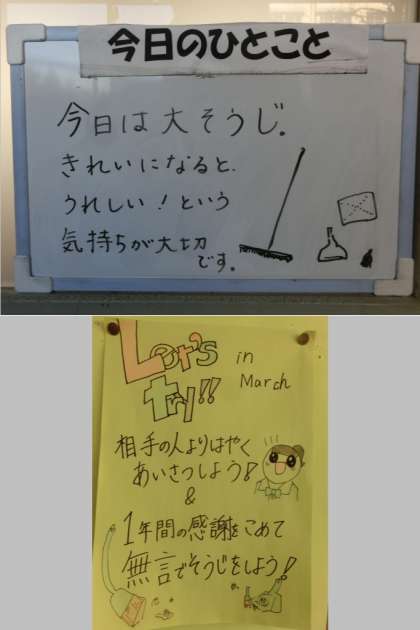 今日のひとこと
今日は大そうじ。
きれいになると、
うれしい！という
気持ちが大切
です。
Let's in
try!! March
相手の人よりはやく
あいさつしよう！
&
1年間の感謝をこめて
無言でそうじをしよう！